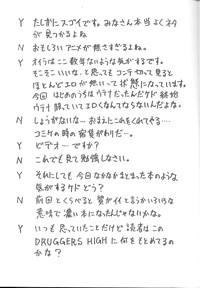 Y たしかにスゴイです。みなさん本当よくネタ
が見つかるよね
N おもしろいアニメが無さすぎるよね。
Y オイラはここ数年ないような気がするです。
そこそこいいな、と思ってもコンテ切って見ると
ほとんどエロが無いって状態になっています。
今回はじめのうちはウテナだったんだケド結局
ウテナ酔っていてエロくなくてならないんだよな。
N しょうがないな… おまえにこれをくれてやる…
コミケの時の宿賃がわりだ…。
Y ビデオ…ですか?
N これでも見て勉強しなさい。
Y それにしても今回なかなかまとまった本のような
気がするケドどう?
N 前回とくらべると質がイイと言うかいろいろな
意味で濃い本になったんじゃないかな。
Y いつも思っていたことだけど読者はこの
DRUGGERS HIGHに何をもとめてるの
かな?